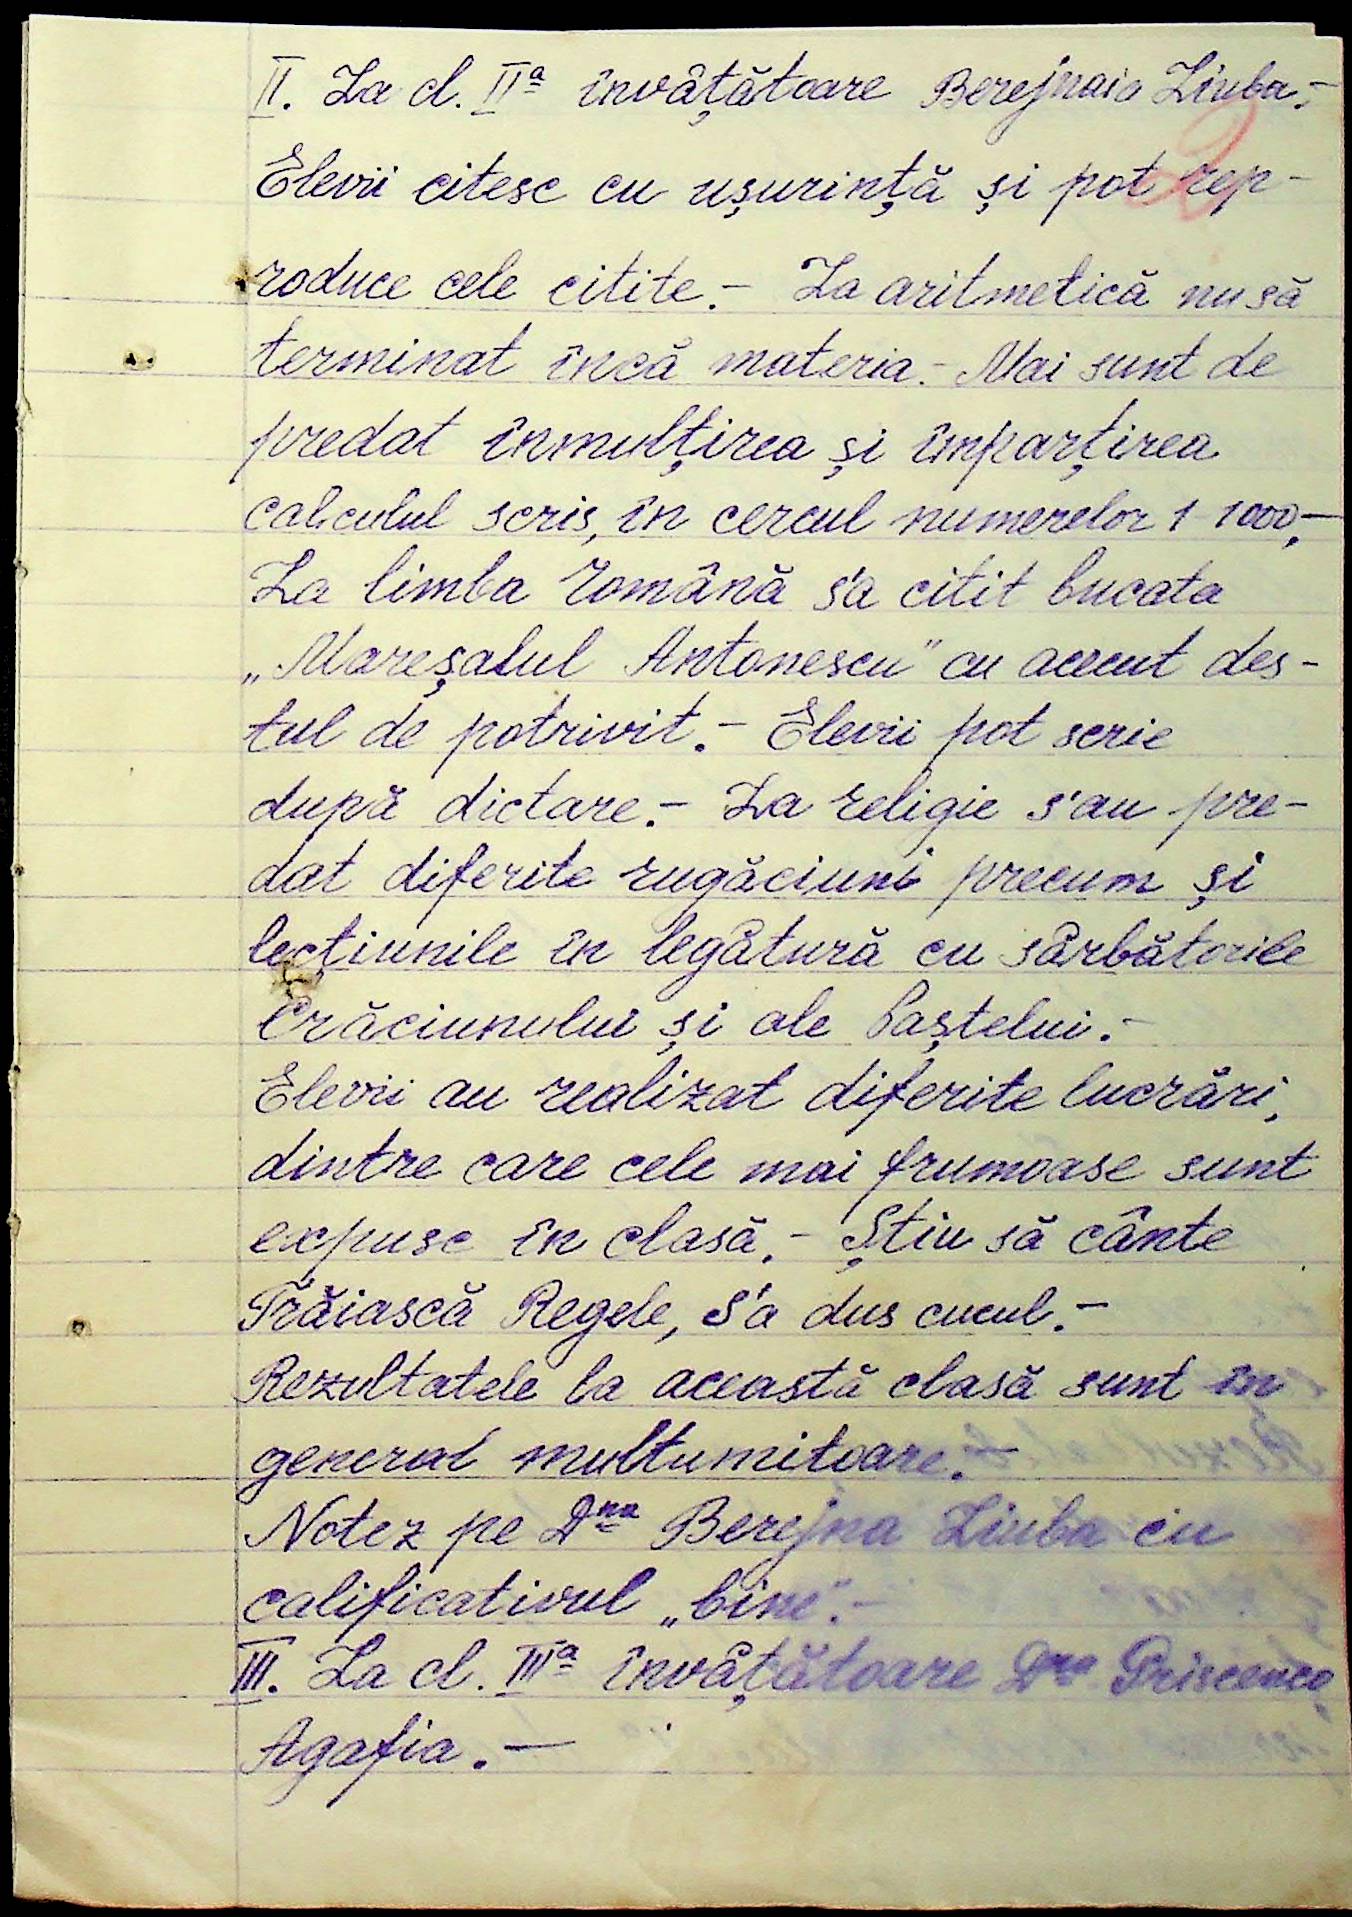 II. La cl. IIª învâțătoare Berejnaia Liuba.-
Elevii citesc cu ușurință și pot rep-
roduce cele citite.- La aritmetică nu să
terminat încă materia.- Mai sunt de
predat înmulțirea și împarțirea
calculul scris, în cercul numerelor 1-1000.-
La limba română s'a citit bucata
„Mareșalul Antonescu" cu accent des-
tul de potrivit.- Elevii pot scrie
după dictare.- La religie s'au pre-
dat diferite rugăciuni precum și
lecțiunile în legâtură cu sârbătorile
Crăciunului și ale Paștelui.-
Elevii au realizat diferite lucrări,
dintre care cele mai frumoase sunt
expuse în clasă.- Știu să cânte
Trăiască Regele, S'a dus cucul.-
Rezultatele la această clasă sunt în
general multumitoare.-
Notez pe Dna Berejna Liuba cu
calificativul „bine".-
III. La cl. IIIª învâțătoare Dna Priscenco
Agafia.-